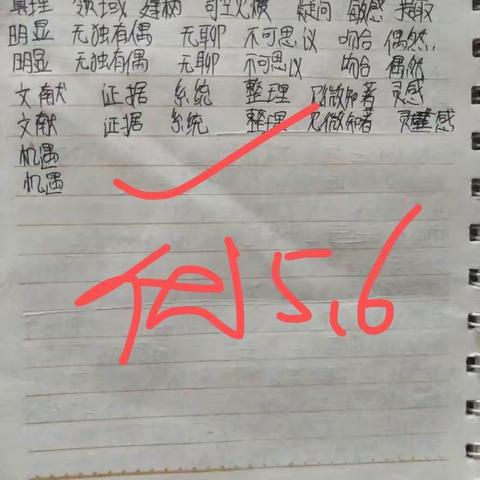 真理 领域 建树 可望 疑问 敏感 摄取
明显 无独有偶 无聊 不可思议 吻合 偶然
明显 无独有偶 无聊 不可思议 吻合 偶然
文献 证据 系统 整理 见微知著 灵感
文献 证据 系统 整理 见微知著 灵感
机遇
机遇
5,6